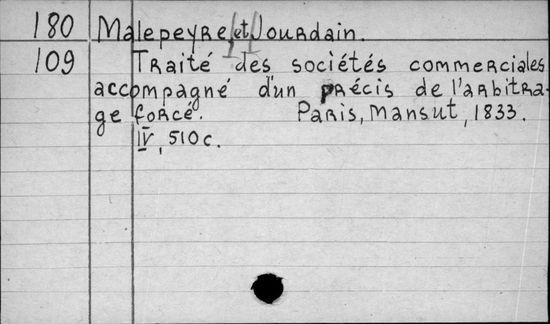 180 Malepeyre, et Jourdain.
109 Traité des sociétés commerciales
accompagné d'un précis de l'arbitra-
ge forcé. Paris, Mansut, 1833.
IV, 510 c.